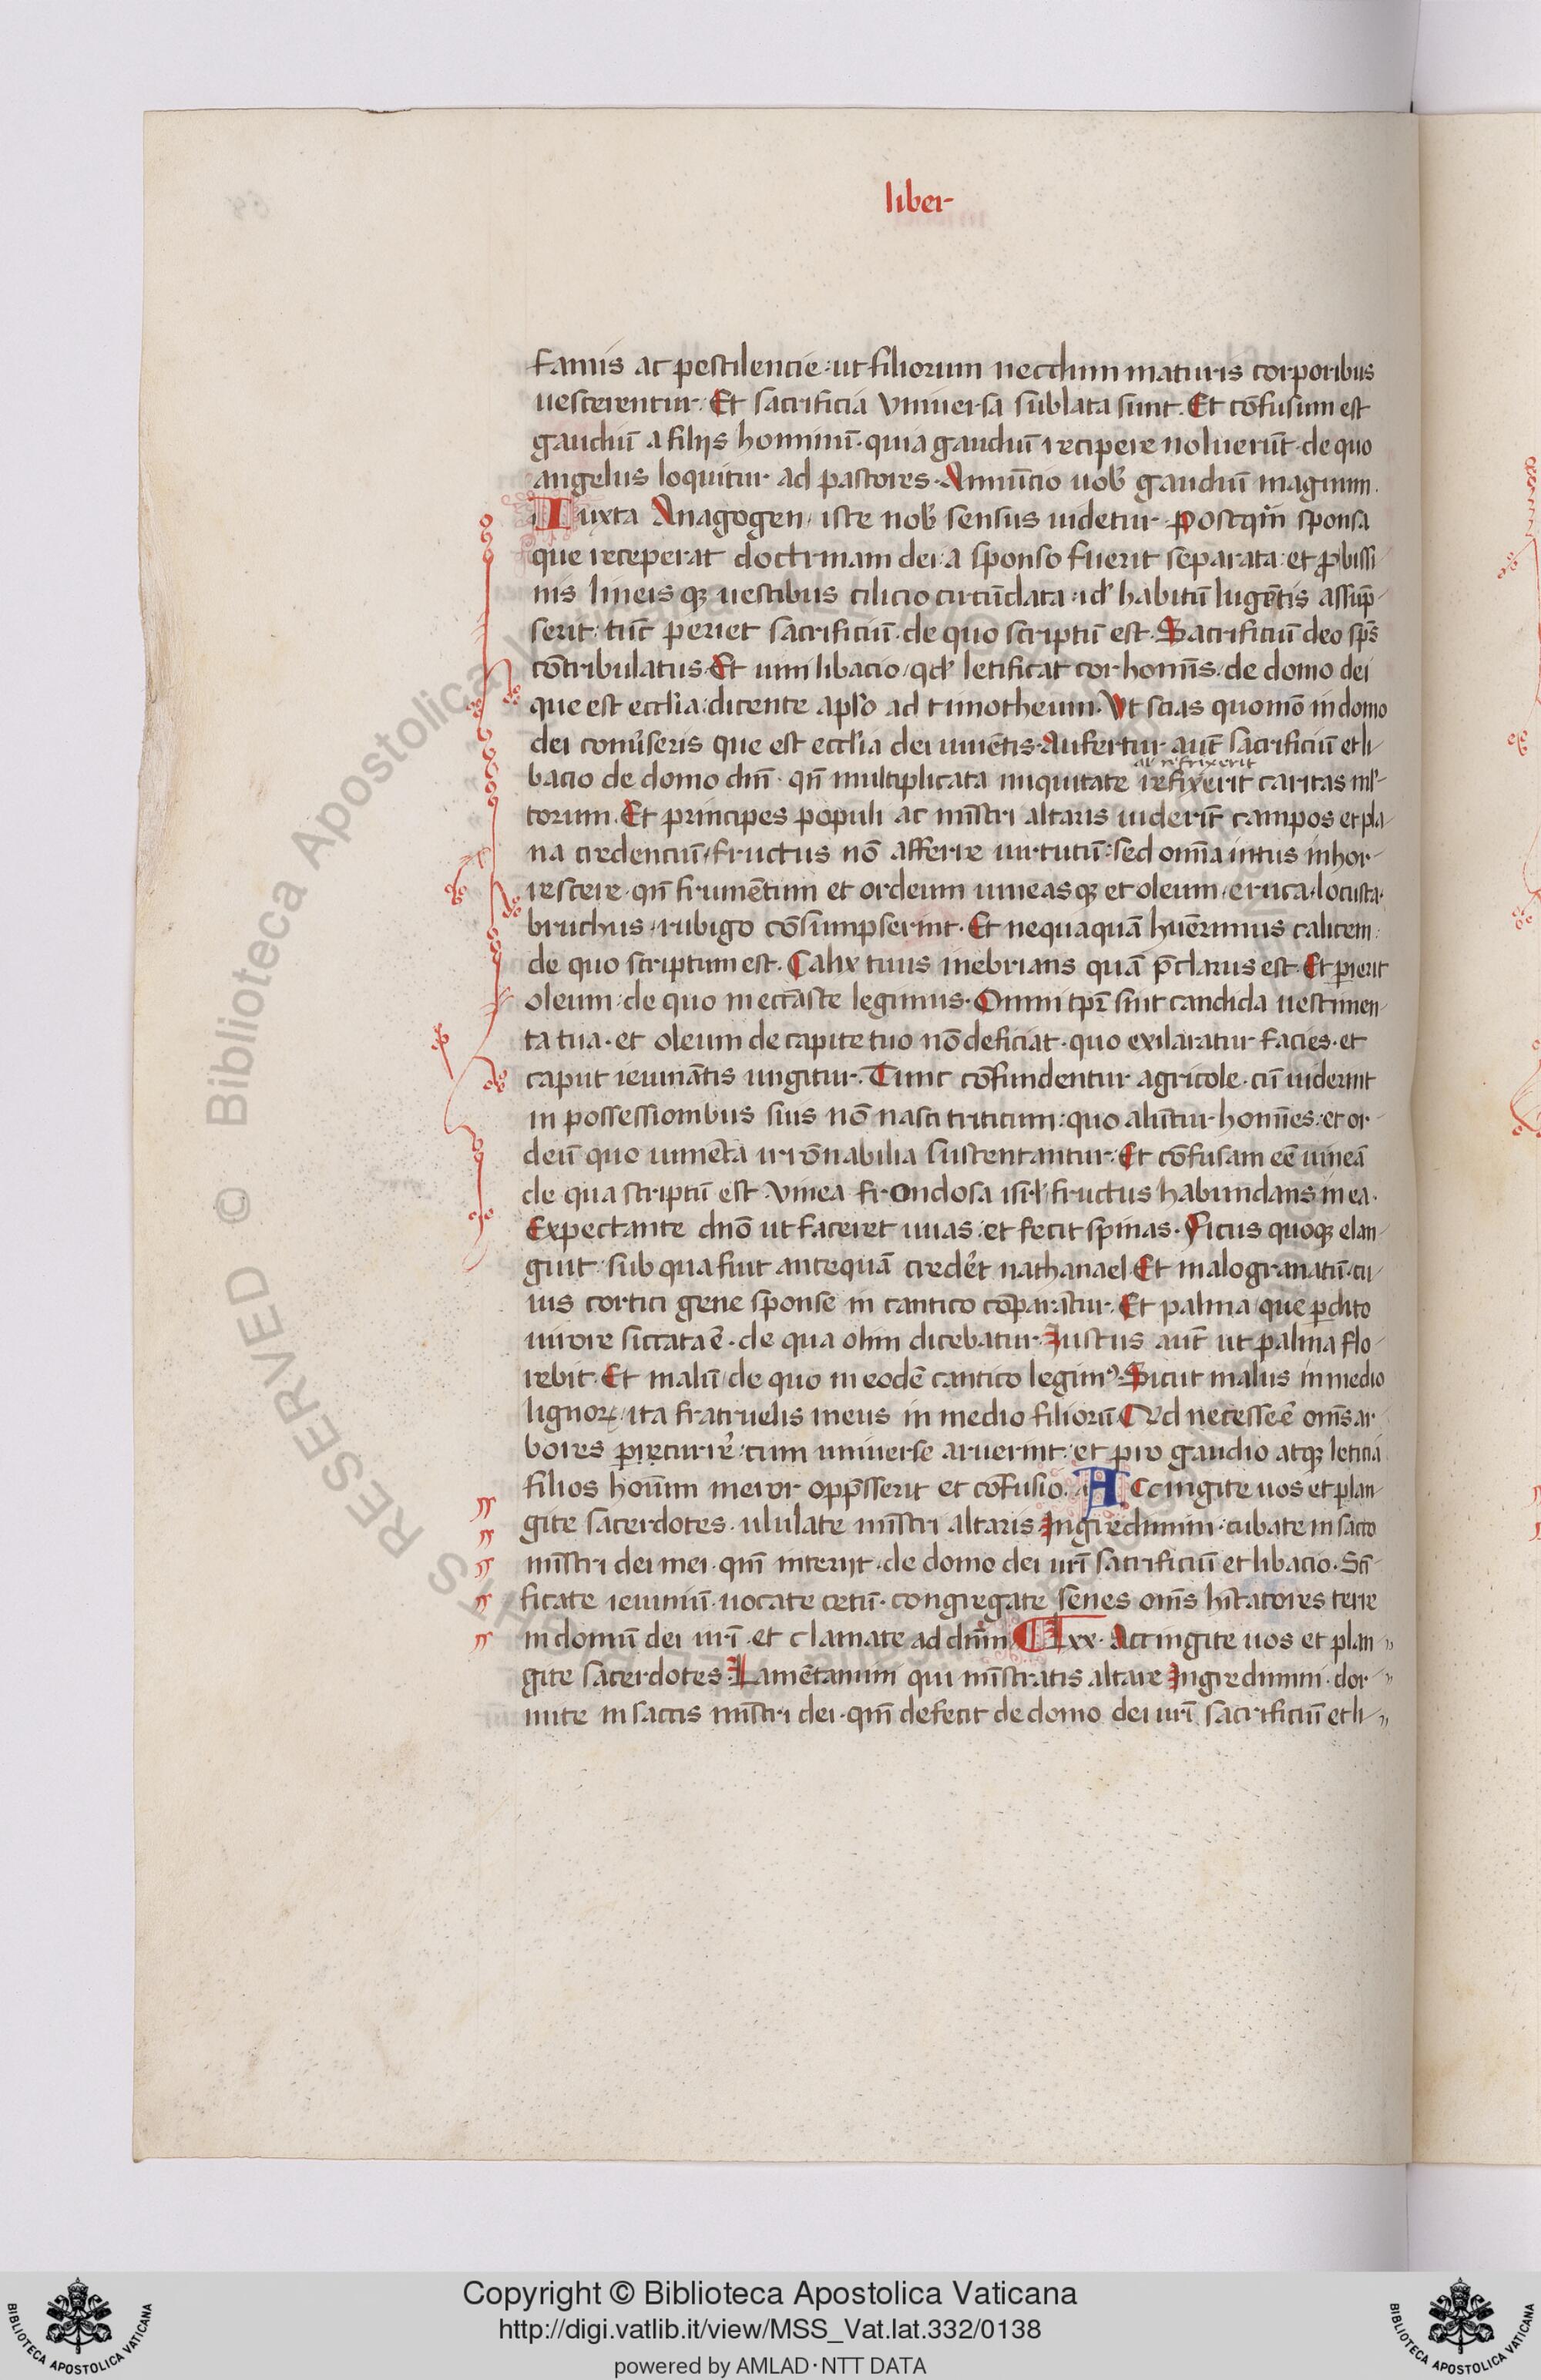 liber
famis ac pestilencie: ut filiorum necdum maturis corporibus
uescerentur. Et sacrificia vniuersa sublata sunt. Et cōfusum est
gaudiū a filijs hominū. quia gaudiū recipere noluerūt. de quo
angelus loquitur ad pastores. Annūcio uob̄ gaudiū magnum.
Iuxta Anagogen, iste nob̄ sensus uidetur. postqm̄ sponsa
que receperat doctrinam dei: a sponso fuerit separata: et ꝓ bissi
nis lineisqꝫ uestibus cilicio circūdata. id̄ habitū lugētis assūp
serit: tūc periet sacrificiū. de quo scriptū est. Sacrificiū deo sps̄
cōtribulatus. Et uini libacio, qd̄ letificat cor homīs. de domo dei
que est eccl̄ia: dicente apl̄o ad timotheum. Vt scias quomō in domo
dei conūseris que est eccl̄ia dei uiuētis. Aufertur aūt sacrificiū et li
al' refrixerit
bacio de domo dn̄i. qn̄ multiplicata iniquitate refixerit caritas ml̄
torum. Et principes populi ac mīstri altaris uiderīt campos et pla
na credenciū, fructus nō afferre uirtutū: sed om̄ia intus inhor
rescere. qn̄ frumētum et ordeum uineasqꝫ et oleum, eruca, locusta,
bruchus, rubigo cōsumpserint. Et nequaquā hūerimus calicem:
de quo scriptum est. Calix tuus inebrians quā p̄clarus est. Et ꝑierit
oleum: de quo in ecc̄aste legimus. Omni tp̄r sint candida uestimen
ta tua. et oleum de capite tuo nō deficiat. quo exilaratur facies. et
caput ieiunātis ungitur. Tunc cōfundentur agricole. cū uiderint
in possessionibus suis nō nasci triticum: quo alūtur homīes. et or
deū quo iumēta irrōnabilia sustentantur. Et cōfusam eē uineā
de qua scriptū est. Vinea frondosa isrl̄ fructus habundans in ea.
Expectante dn̄o ut faceret uuas. et fecit spinas. Ficus quoqꝫ elan
guit: sub qua fuit antequā creder̄t nathanael. Et malogranatū. cu
ius cortici gene sponse in cantico cōparātur. Et palma, que ꝑdito
uirore siccata ē. de qua olim dicebatur. Iustus aūt ut palma flo
rebit. Et malū, de quo in eodē cantico legimꝰ. Sicut malus in medio
lignoꝝ, ita fratruelis meus in medio filiorū. Qd necesse ē om̄s ar
bores ꝑire cum uniuerse aruerint: et pro gaudio atqꝫ leticia
filios hoīum meror opp̄sserit et cōfusio. Accingite uos et plan
gite sacerdotes. ululate mīstri altaris. Ingredimini. cubate in sacco
mīstri dei mei. qm̄ interijt. de domo dei ur̄i sacrificiū et libacio. Sc̄i
ficate ieiuniū. uocate cetū. congregate senes om̄s hītatores terre
in domū dei ur̄i. et clamate ad dn̄m. lxx. Accingite uos et plan
gite sacerdotes. Lamētamini qui mīstratis altare. Ingredimini. dor
mite in saccis mīstri dei. qm̄ defecit de domo dei ur̄i sacrificiū et li
RESERVED © Biblioteca Apostolica
Copyright © Biblioteca Apostolica Vaticana
http://digi.vatlib.it/view/MSS_Vat.lat.332/0138
powered by AMLAD·NTT DATA
BIBLIOTECA APOSTOLICA VATICANA
BIBLIOTECA APOSTOLICA VATICANA